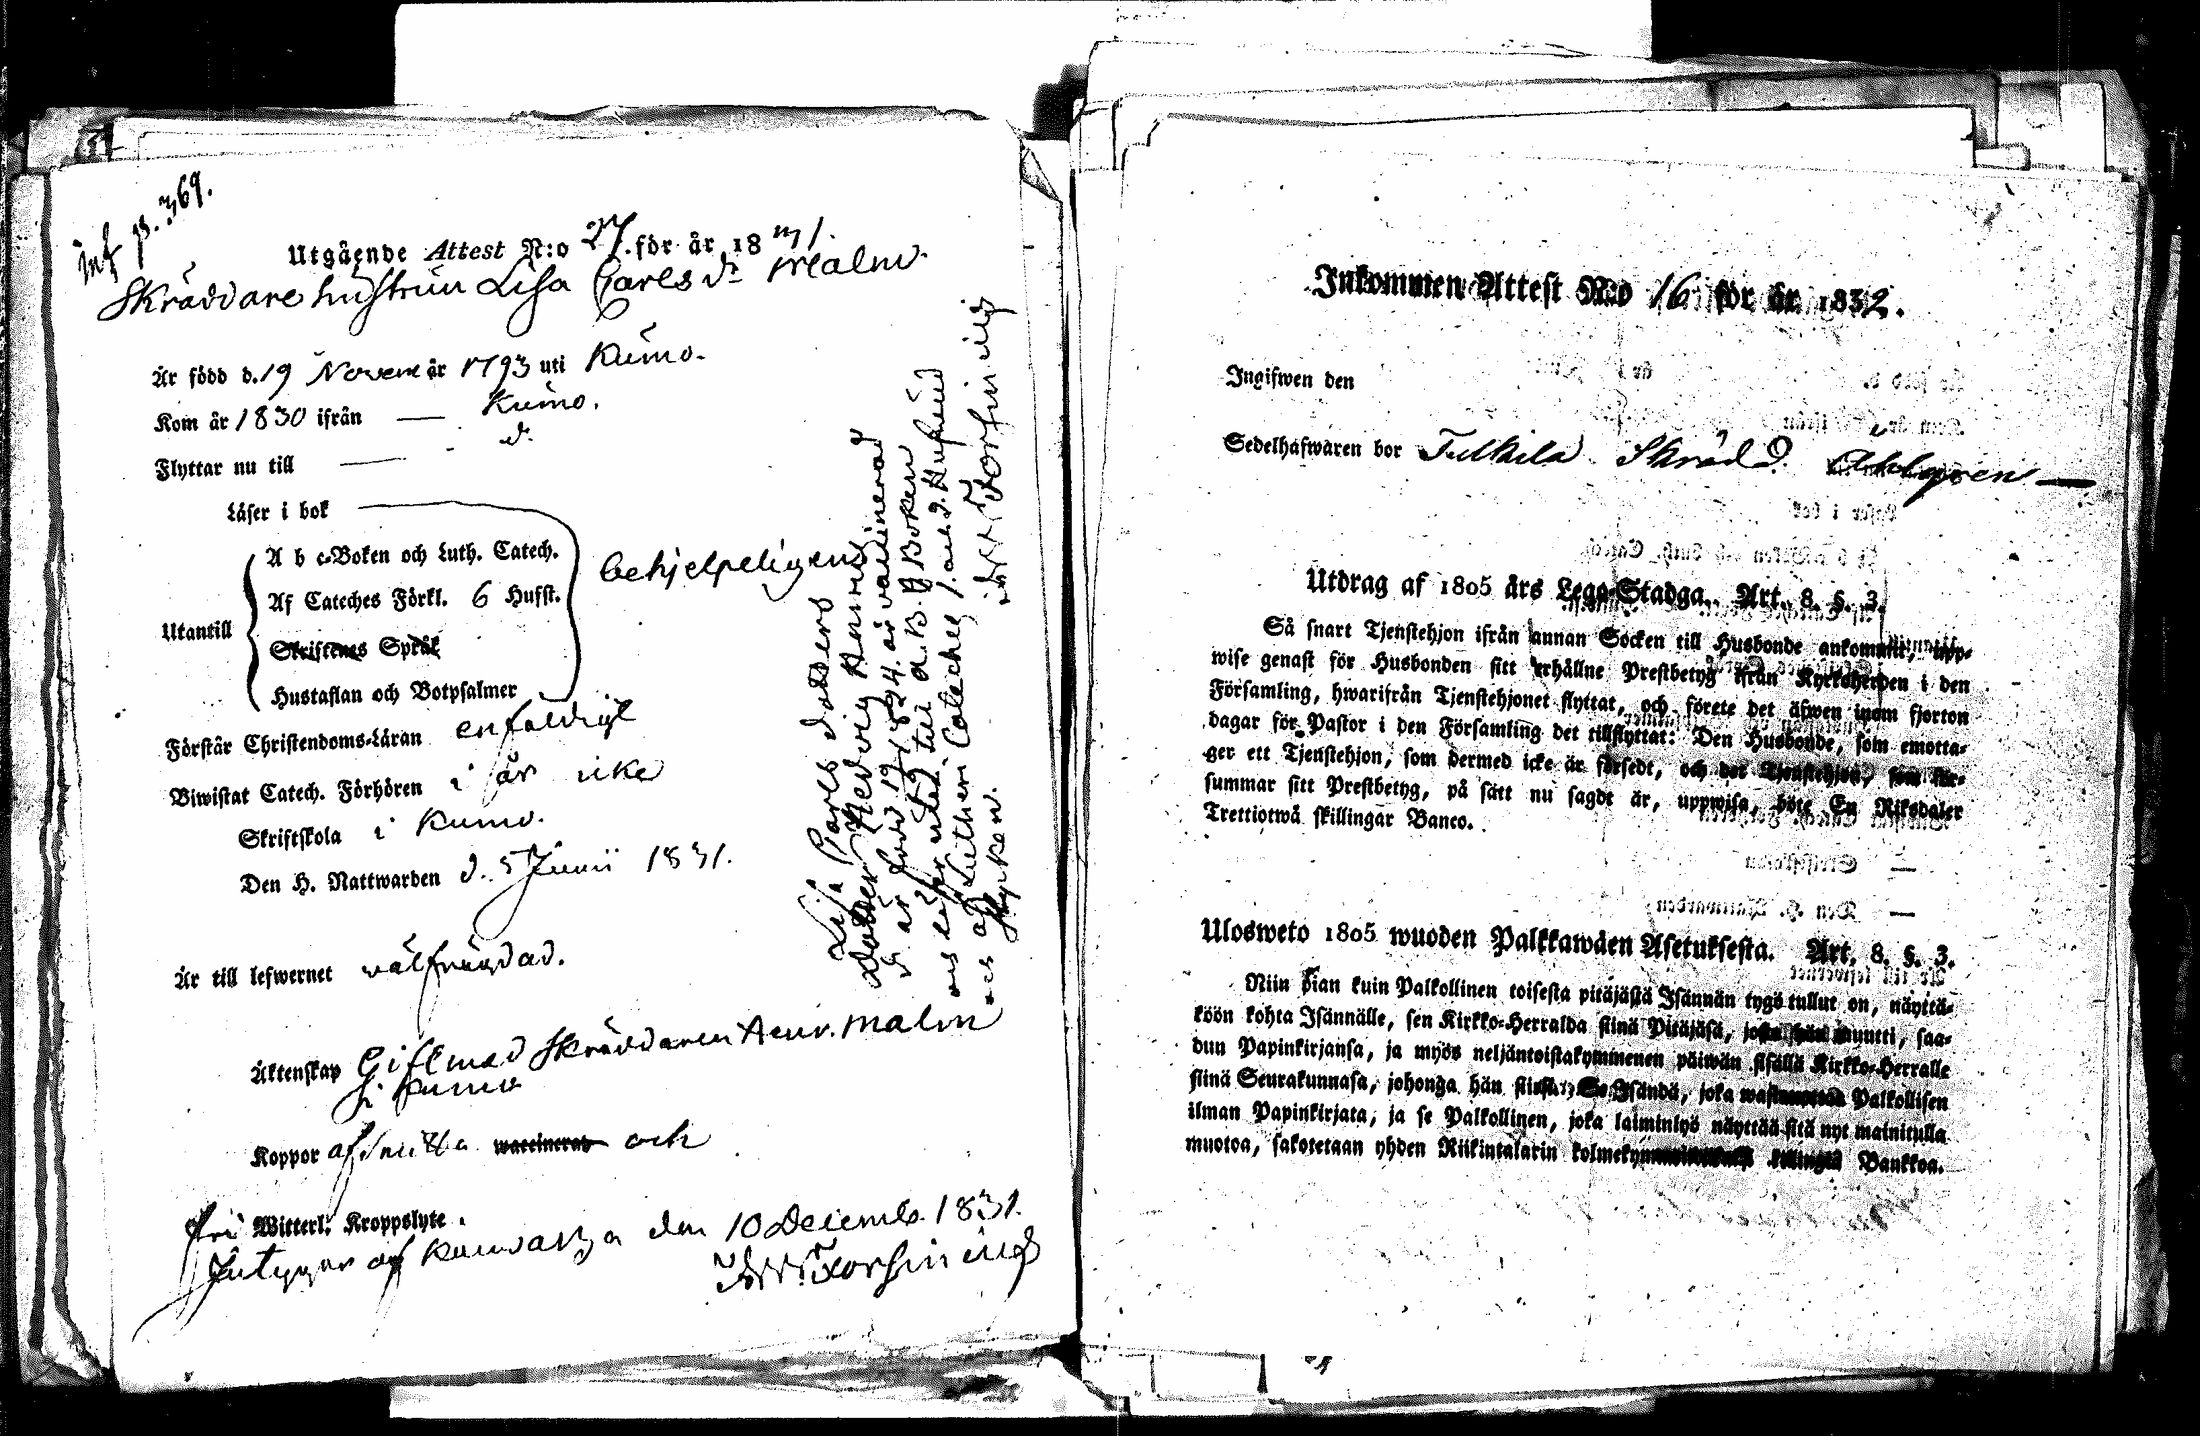 inf p. 369.
Utgående Attest N:o 27. för år 1831.
Skräddare hustrun Lisa Carlsdr Malm.
Är född d. 19 Novem år 1793 uti Kumo.
Kom år 1830 ifrån — Kumo.
Flyttar nu till — d:
Läser i bok
Utantill
A b c-Boken och Luth. Catech.
Af Cateches Förkl. 6 Hufst.
Skriftenes Språk
Hustaflan och Botpsalmer
behjelpeligen
Förstår Christendoms-Läran enfaldigt
Biwistat Catech. Förhören i år icke
Skriftskola i Kumo.
Den H. Nattwarden d. 5 Junii 1831.
Är till lefwernet välfrägdad.
Äktenskap Gift med Skräddaren Henr. Malm
i Kumo
Koppor afsnitta waccinerad och
fri Witterl: Kroppslyte.
Intygar af den 10 Decemb. 1831.
Forsinius
Lisa Carls dotters
dotter Hedvig Henrics
dr är född 19 1824. är vaccinerad
och läser utan till A. B. C Boken
och af Lutheri Cateches 1. och 2. Hufvud
stycken. Forsinius
Inkommen Attest N:o 16 för år 1832.
Ingifwen den
Sedelhafwaren bor Tulkila Skrädd. Ahlgren —
Utdrag af 1805 års Lego-Stadga. Art. 8. §. 3.
Så snart Tjenstehjon ifrån annan Socken till Husbonde ankommit, upp-
wise genast för Husbonden sitt erhållne Prestbetyg ifrån Kyrkoherden i den
Församling, hwarifrån Tjenstehjonet flyttat, och förete det äfwen inom fjorton
dagar för Pastor i den Församling det tillflyttat: Den Husbonde, som emotta-
ger ett Tjenstehjon, som dermed icke är försedt, och det Tjenstehjon, som för-
summar sitt Prestbetyg, på sätt nu sagdt är, uppwisa, böte En Riksdaler
Trettiotwå skillingar Banco.
Ulosweto 1805 wuoden Palkkawäen Asetuksesta. Art. 8. §. 3.
Niin pian kuin Palkollinen toisesta pitäjästä Isännän tygö tullut on, näyttä-
köön kohta Isännälle, sen Kirkko-Herralda siinä Pitäjäsä, josta hän muutti, saa-
dun Papinkirjansa, ja myös neljäntoistakymmenen päiwän sisällä Kirkko-Herralle
siinä Seurakunnasa, johonga hän siirsi: Se Isändä, joka wastanottaa Palkollisen
ilman Papinkirjata, ja se Palkollinen, joka laiminlyö näyttää sitä nyt mainitulla
muotoa, sakotetaan yhden Riikintalarin killingiä Bankkoa.